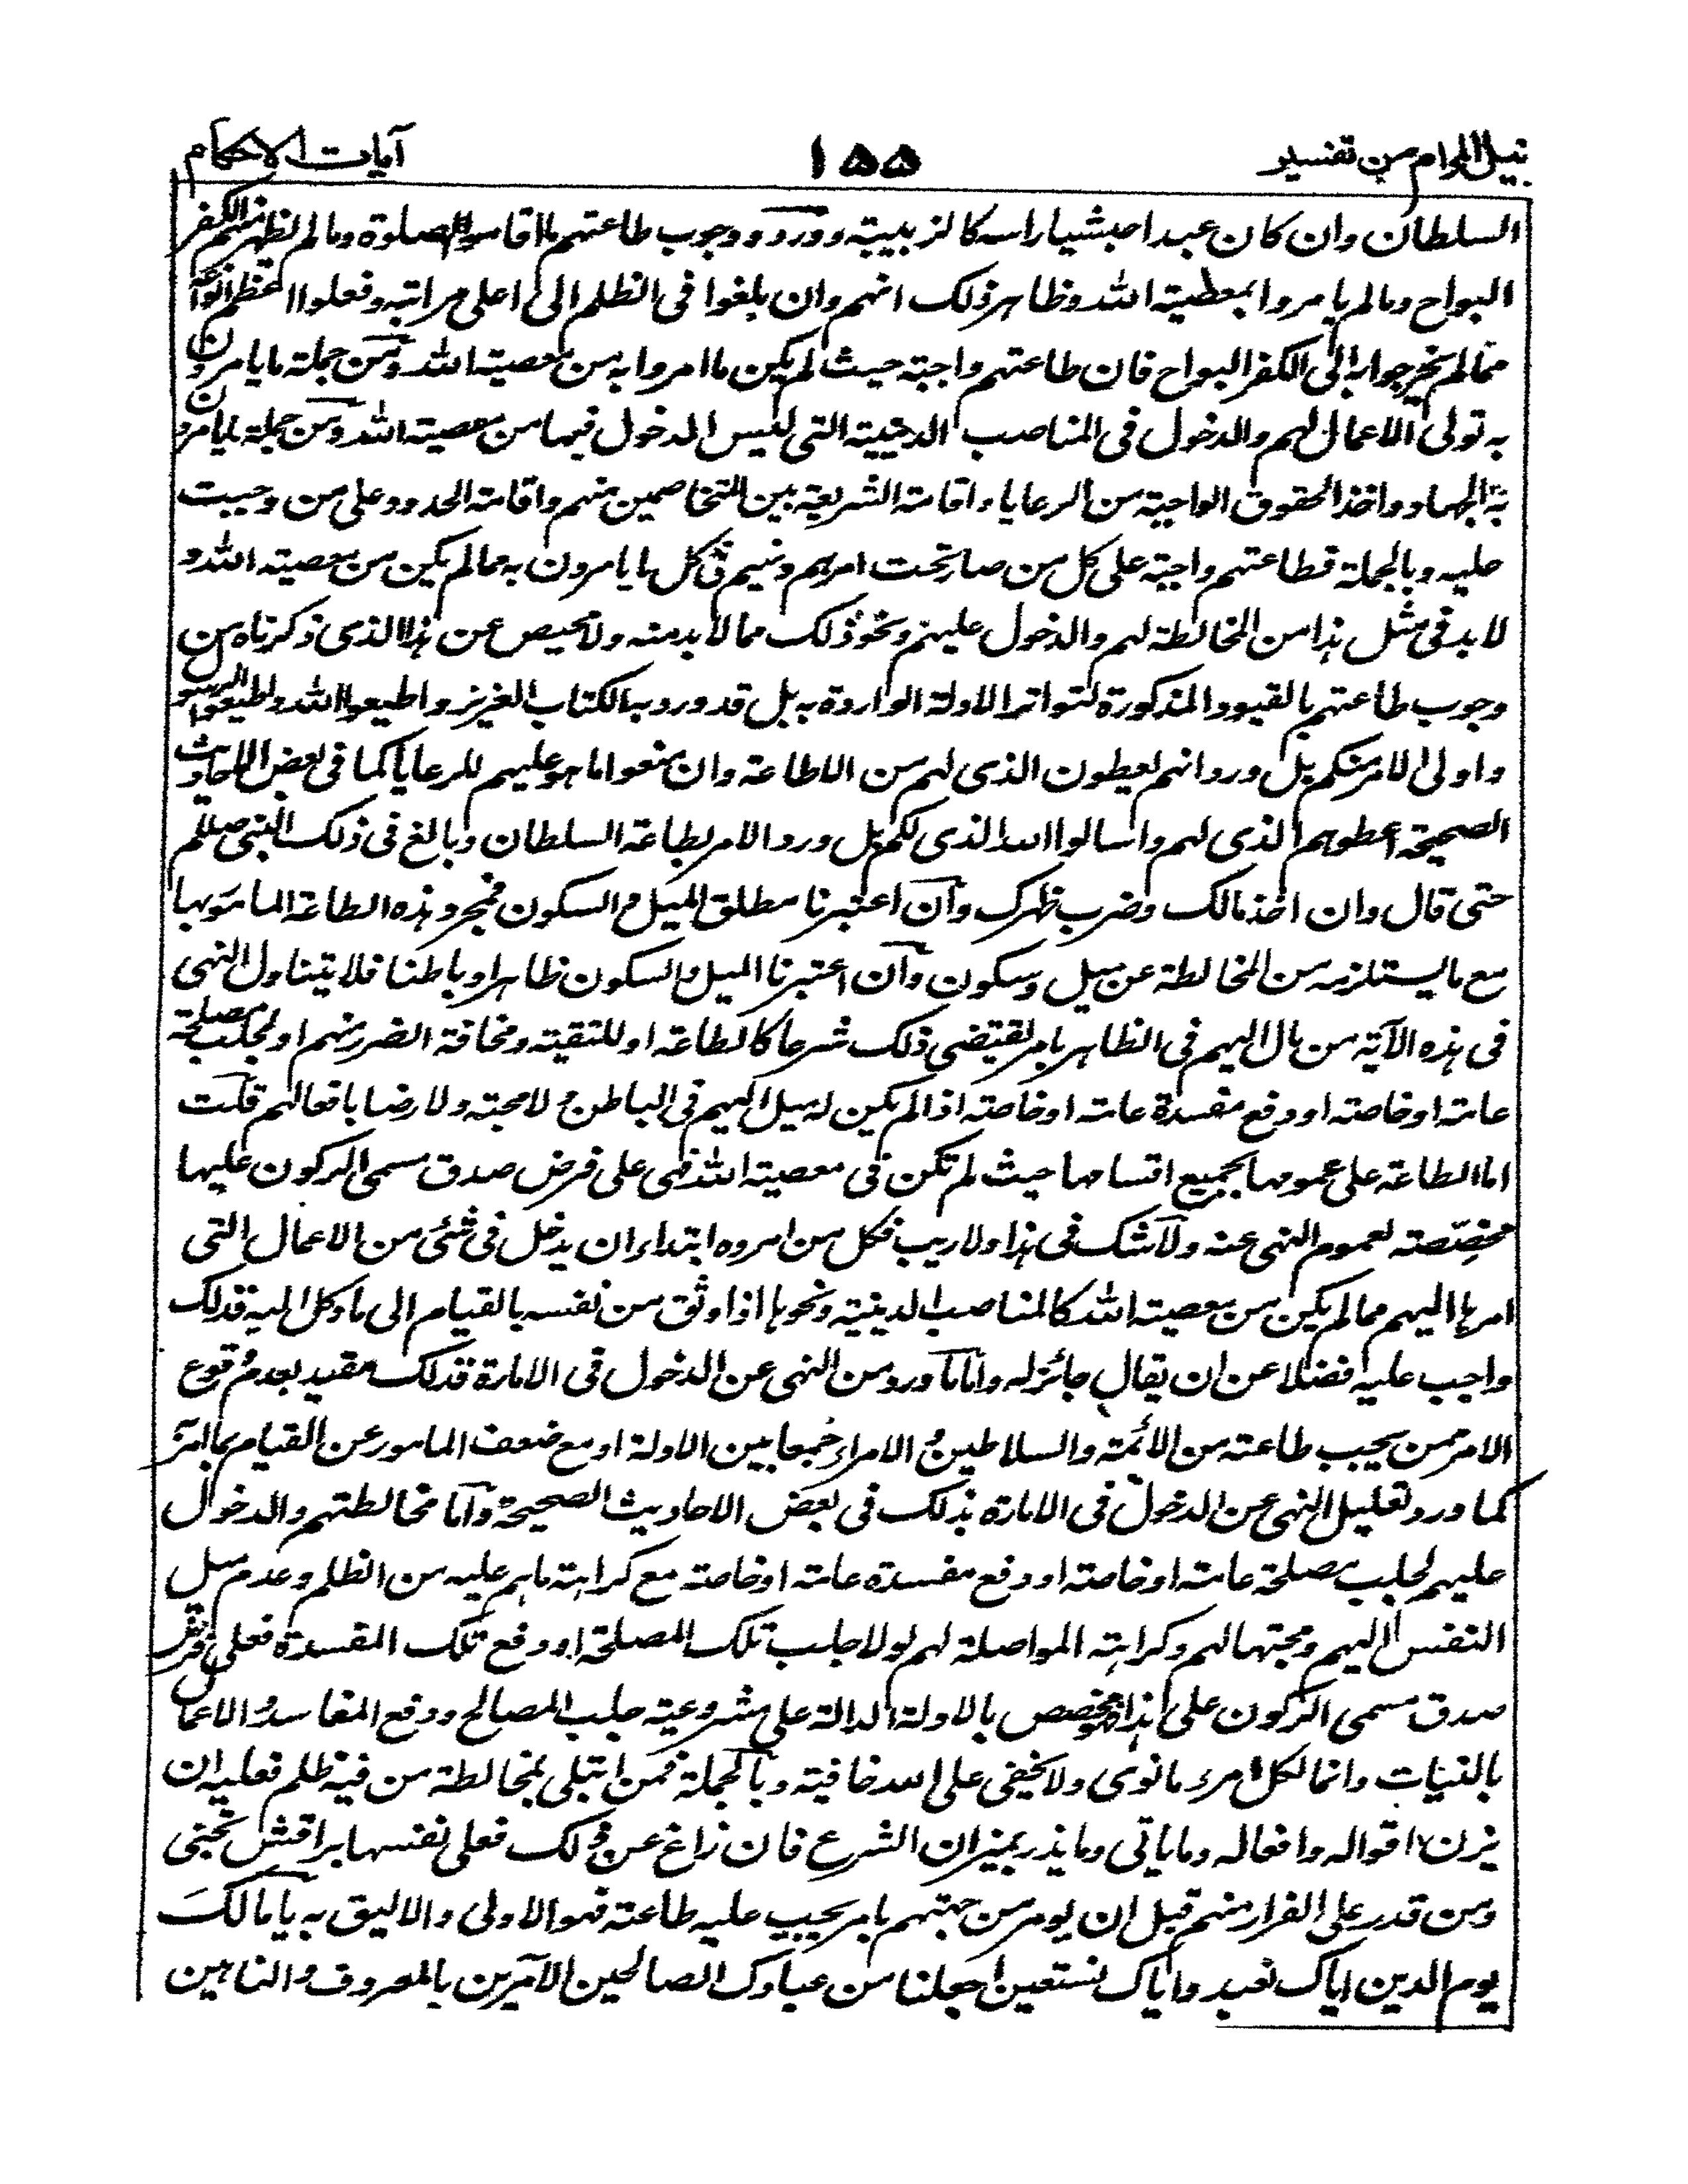 نيل المرام من تفسير ١٥٥ آيات الاحكام
السلطان وان كان عبدا حبشيا راسه كالزبيبة وورد وجوب طاعتهم ما اقاموا الصلوة وما لم يظهر منهم الكفر
البواح وما لم يامروا بمعصية الله وظاهر ذلك انهم وان بلغوا فى الظلم الى اعلى مراتبه وفعلوا اعظم انواعه
مما لم يخرجوا به الى الكفر البواح فان طاعتهم واجبة حيث لم يكن ما امروا به من معصية الله ومن جملة ما يامرون
به تولى الاعمال لهم والدخول فى المناصب الدينية التى ليس الدخول فيها من معصية الله ومن جملة ما يامرون
به الجهاد واخذ الحقوق الواجبة من الرعايا واقامة الشريعة بين المتخاصمين منهم واقامة الحدود على من وجبت
عليه وبالجملة فطاعتهم واجبة على كل من صار تحت امرهم ونهيهم فى كل ما يامرون به مما لم يكن من معصية الله و
لا بد فى مثل هذا من المخالطة لهم والدخول عليهم ونحو ذلك مما لا بد منه ولا محيص عن هذا الذى ذكرناه من
وجوب طاعتهم بالقيود المذكورة لتواتر الادلة الواردة به بل قد ورد به الكتاب العزيز واطيعوا الله واطيعوا الرسول
واولى الامر منكم بل ورد انهم يعطون الذى لهم من الطاعة وان منعوا ما هو عليهم للرعايا كما فى بعض الاحاديث
الصحيحة اعطوهم الذى لهم واسالوا الله الذى لكم بل ورد الامر بطاعة السلطان وبالغ فى ذلك النبى صللم
حتى قال وان اخذ مالك وضرب ظهرك وان اعتبرنا مطلق الميل والسكون فمجرد هذه الطاعة المامور بها
مع ما يستلزمه من المخالطة عن ميل وسكون وان اعتبرنا الميل والسكون ظاهرا وباطنا فلا يتناول النهى
فى هذه الآية من مال اليهم فى الظاهر بامر يقتضى ذلك شرعا كالطاعة او للتقية ومخافة الضرر منهم او لجلب مصلحة
عامة او خاصة او دفع مفسدة عامة او خاصة اذا لم يكن له ميل اليهم فى الباطن ولا محبة ولا رضا بافعالهم قلت
اما الطاعة على عمومها بجميع اقسامها حيث لم تكن فى معصية الله فهى على فرض صدق مسمى الركون عليها
مخصّصة لعموم النهى عنه ولا شك فى هذا ولا ريب فكل من امروه ابتداء ان يدخل فى شئى من الاعمال التى
امرها اليهم مما لم يكن من معصية الله كالمناصب الدينية ونحوها اذا وثق من نفسه بالقيام الى ما وكل اليه فذلك
واجب عليه فضلا عن ان يقال جائز له واما ما ورد من النهى عن الدخول فى الامارة فذلك مقيد بعدم وقوع
الامر ممن يجب طاعته من الائمة والسلاطين والامراء جمعا بين الادلة او مع ضعف المامور عن القيام بما امر
كما ورد تعليل النهى عن الدخول فى الامارة بذلك فى بعض الاحاديث الصحيحة واما مخالطتهم والدخول
عليهم لجلب مصلحة عامة او خاصة او دفع مفسدة عامة او خاصة مع كراهة ما هم عليه من الظلم وعدم ميل
النفس اليهم ومحبتها لهم وكراهة المواصلة لهم لولا جلب تلك المصلحة او دفع تلك المفسدة فعلى فرض
صدق مسمى الركون على هذا فهو مخصص بالادلة الدالة على مشروعية جلب المصالح ودفع المفاسد والاعمال
بالنيات وانما لكل امرء ما نوى ولا يخفى على الله خافية وبالجملة فمن ابتلى بمخالطة من فيه ظلم فعليه ان
يزن اقواله وافعاله وما ياتى وما يذر بميزان الشرع فان زاغ عن ذلك فعلى نفسها براقش تجنى
ومن قدر على الفرار منهم قبل ان يومر من جهتهم بامر يجب عليه طاعته فهو الاولى والاليق به يا مالك
يوم الدين اياك نعبد واياك نستعين اجعلنا من عبادك الصالحين الآمرين بالمعروف والناهين